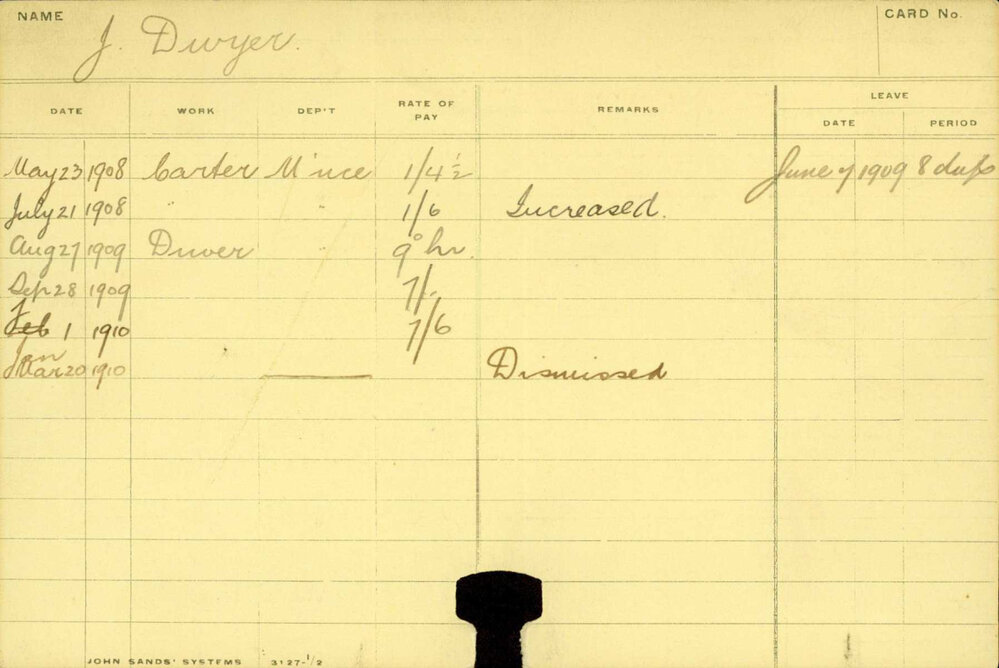 NAME J. Dwyer. CARD No.
DATE WORK DEP'T RATE OF PAY REMARKS LEAVE
DATE PERIOD
May 23 1908 Carter M'nce 1/4½ June 7 1909 8 days
July 21 1908 " " 1/6 Increased.
Aug 27 1909 Driver " 9° hr.
Sep 28 1909 7/-
Feb 1 1910 7/6
Jan
Mar 20 1910 Dismissed
JOHN SANDS' SYSTEMS 3127-1/2